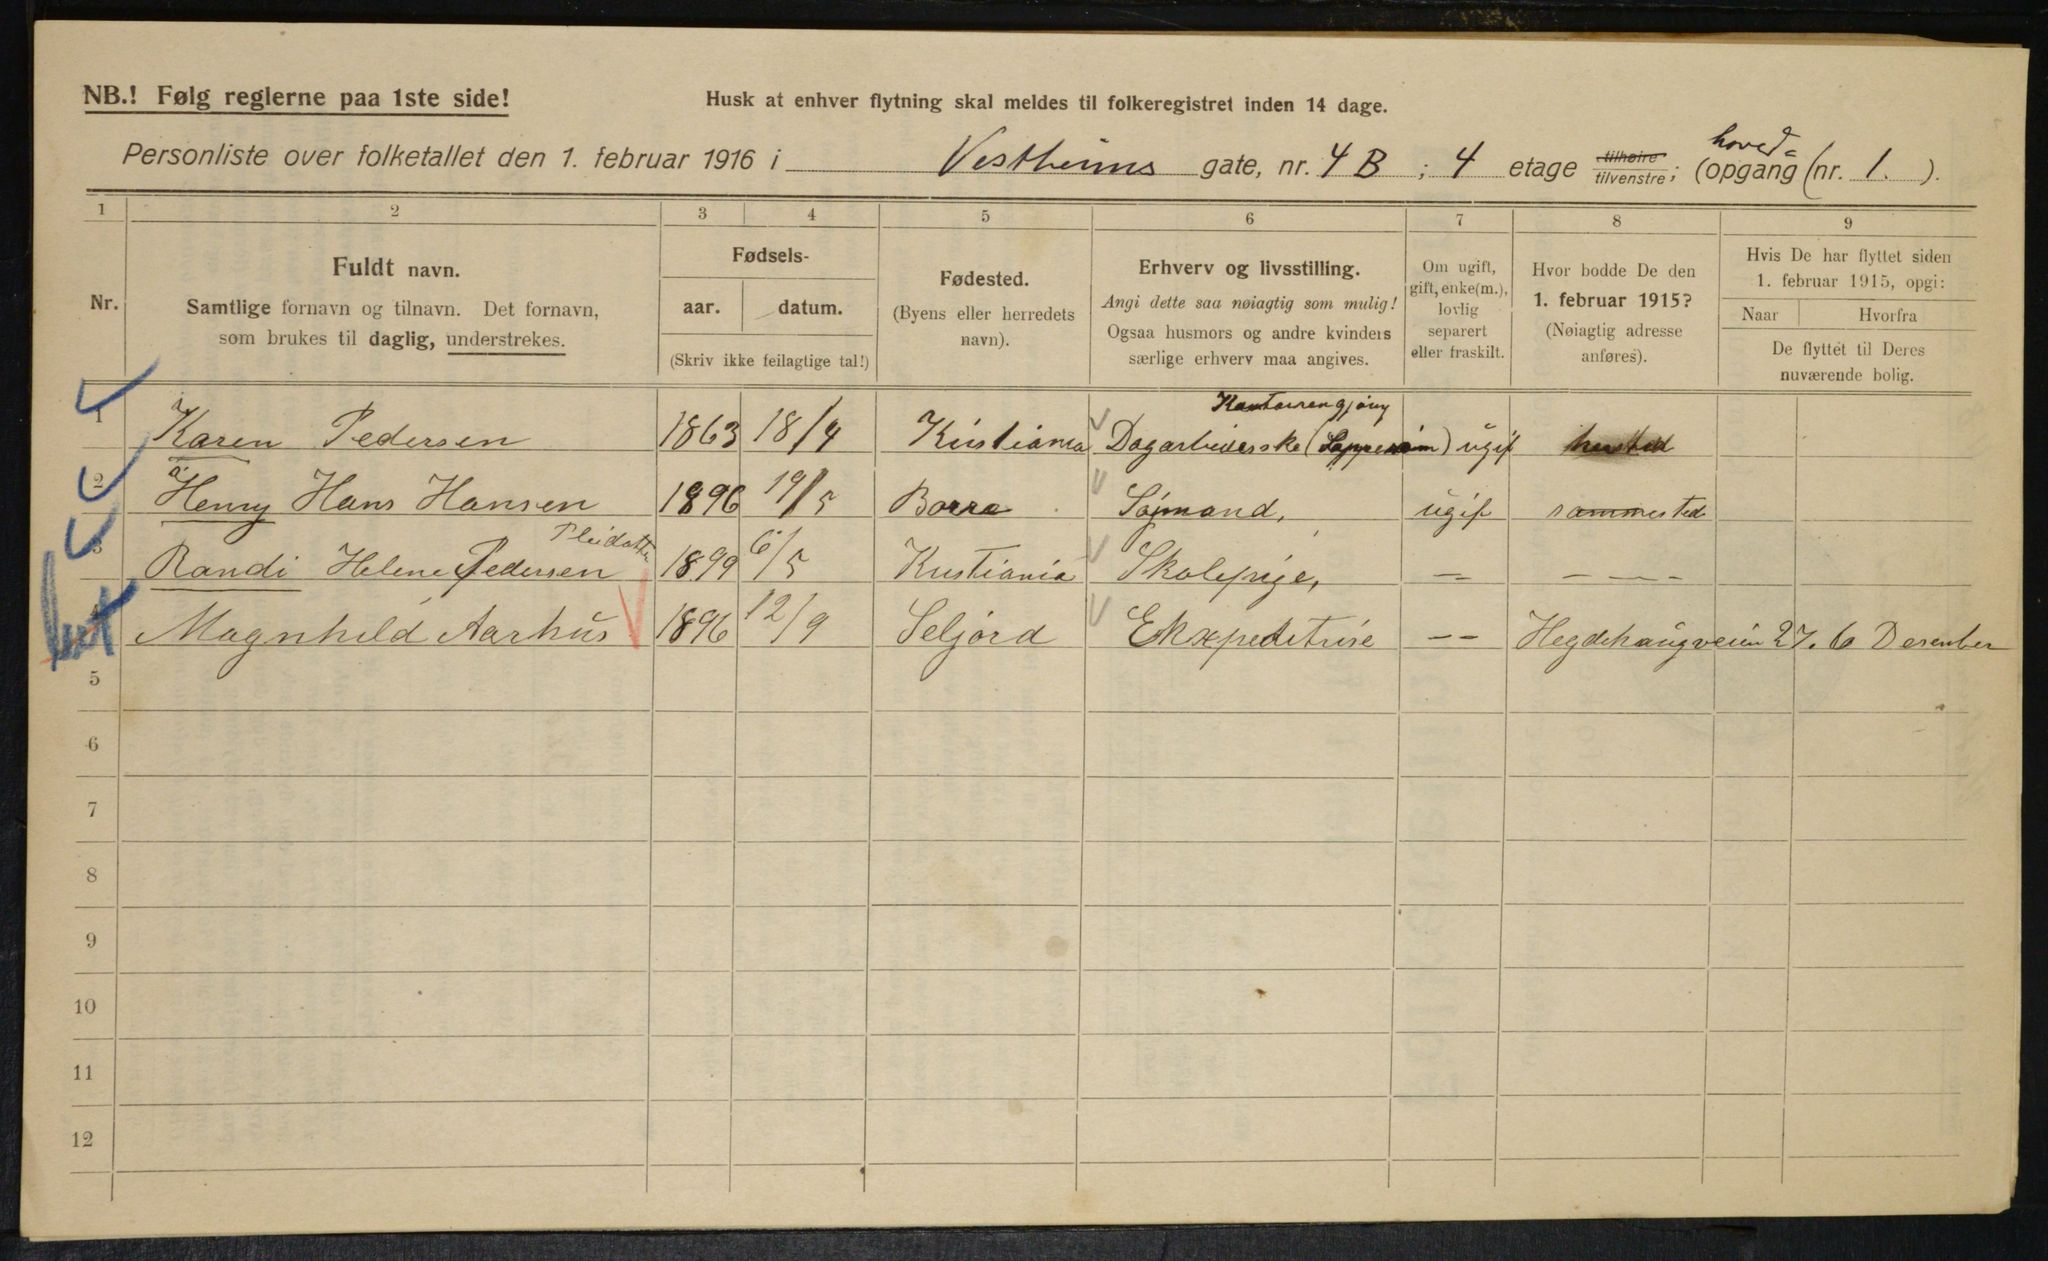 NB.! Følg reglerne paa 1ste side!
Husk at enhver flytning skal meldes til folkeregistret inden 14 dage.
Personliste over folketallet den 1. februar 1916 i Vestheims gate, nr. 4 B ; 4 etage tilhøire tilvenstre; hoved= (opgang (nr. 1. ).
1 2 3 4 5 6 7 8 9
Nr.
Fuldt navn.
Samtlige fornavn og tilnavn. Det fornavn,
som brukes til daglig, understrekes.
Fødsels-
aar. datum.
(Skriv ikke feilagtige tal!)
Fødested.
(Byens eller herredets
navn).
Erhverv og livsstilling.
Angi dette saa nøiagtig som mulig!
Ogsaa husmors og andre kvinders
særlige erhverv maa angives.
Om ugift,
gift, enke(m.),
lovlig
separert
eller fraskilt.
Hvor bodde De den
1. februar 1915?
(Nøiagtig adresse
anføres).
Hvis De har flyttet siden
1. februar 1915, opgi:
Naar Hvorfra
De flyttet til Deres
nuværende bolig.
1 Karen Pedersen 1863 18/4 Kristiania Dagarbeiderske ugif
2 Henry Hans Hansen 1896 19/5 Borre Sjømand, ugif sammested
Pleidatter
3 Randi Helene Pedersen 1899 6/5 Kristiania Skolepige, — – – – –
4 Magnhild Aarhus 1896 12/9 Seljord Ekxpeditrise – – Hegdehaugveien 27. 6 Desember
5
6
7
8
9
10
11
12